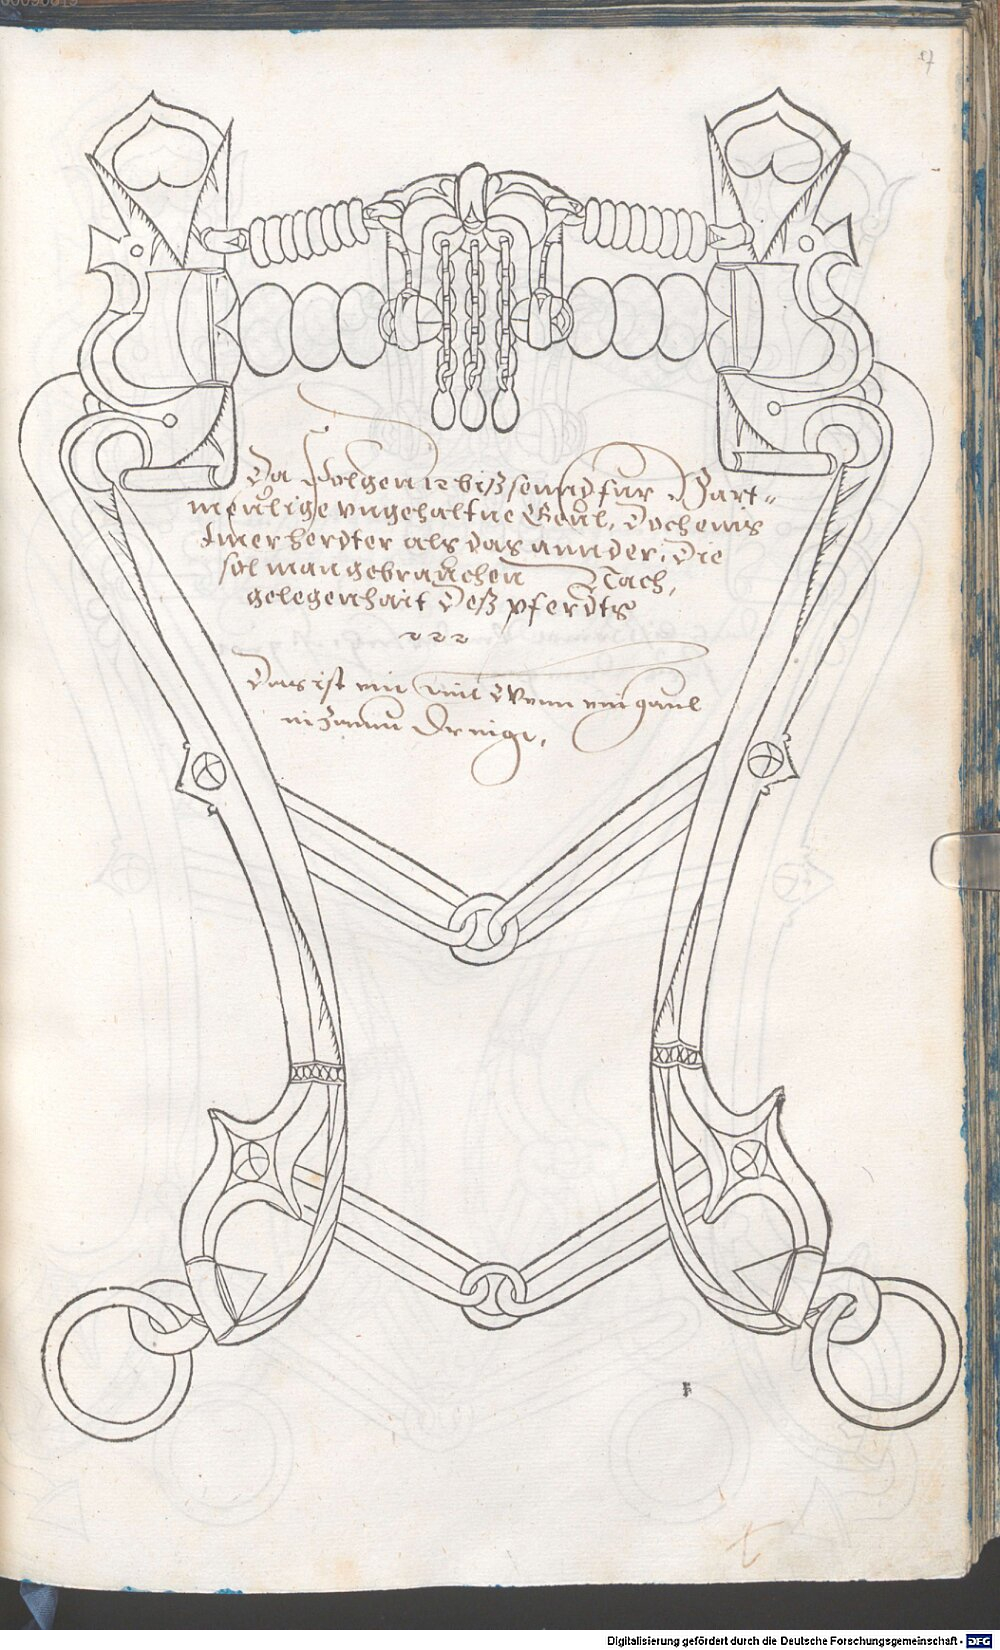 9
Da Volgen 12 biß seinnd für Hart-
meülige vngehaltne Geül, Doch eins
Imer herdter als das annder, Die
sol man gebrauchen Nach,
gelegenhait Deß pferdts
Das ist ein Wenn ein gaul
Digitalisierung gefördert durch die Deutsche Forschungsgemeinschaft - DFG